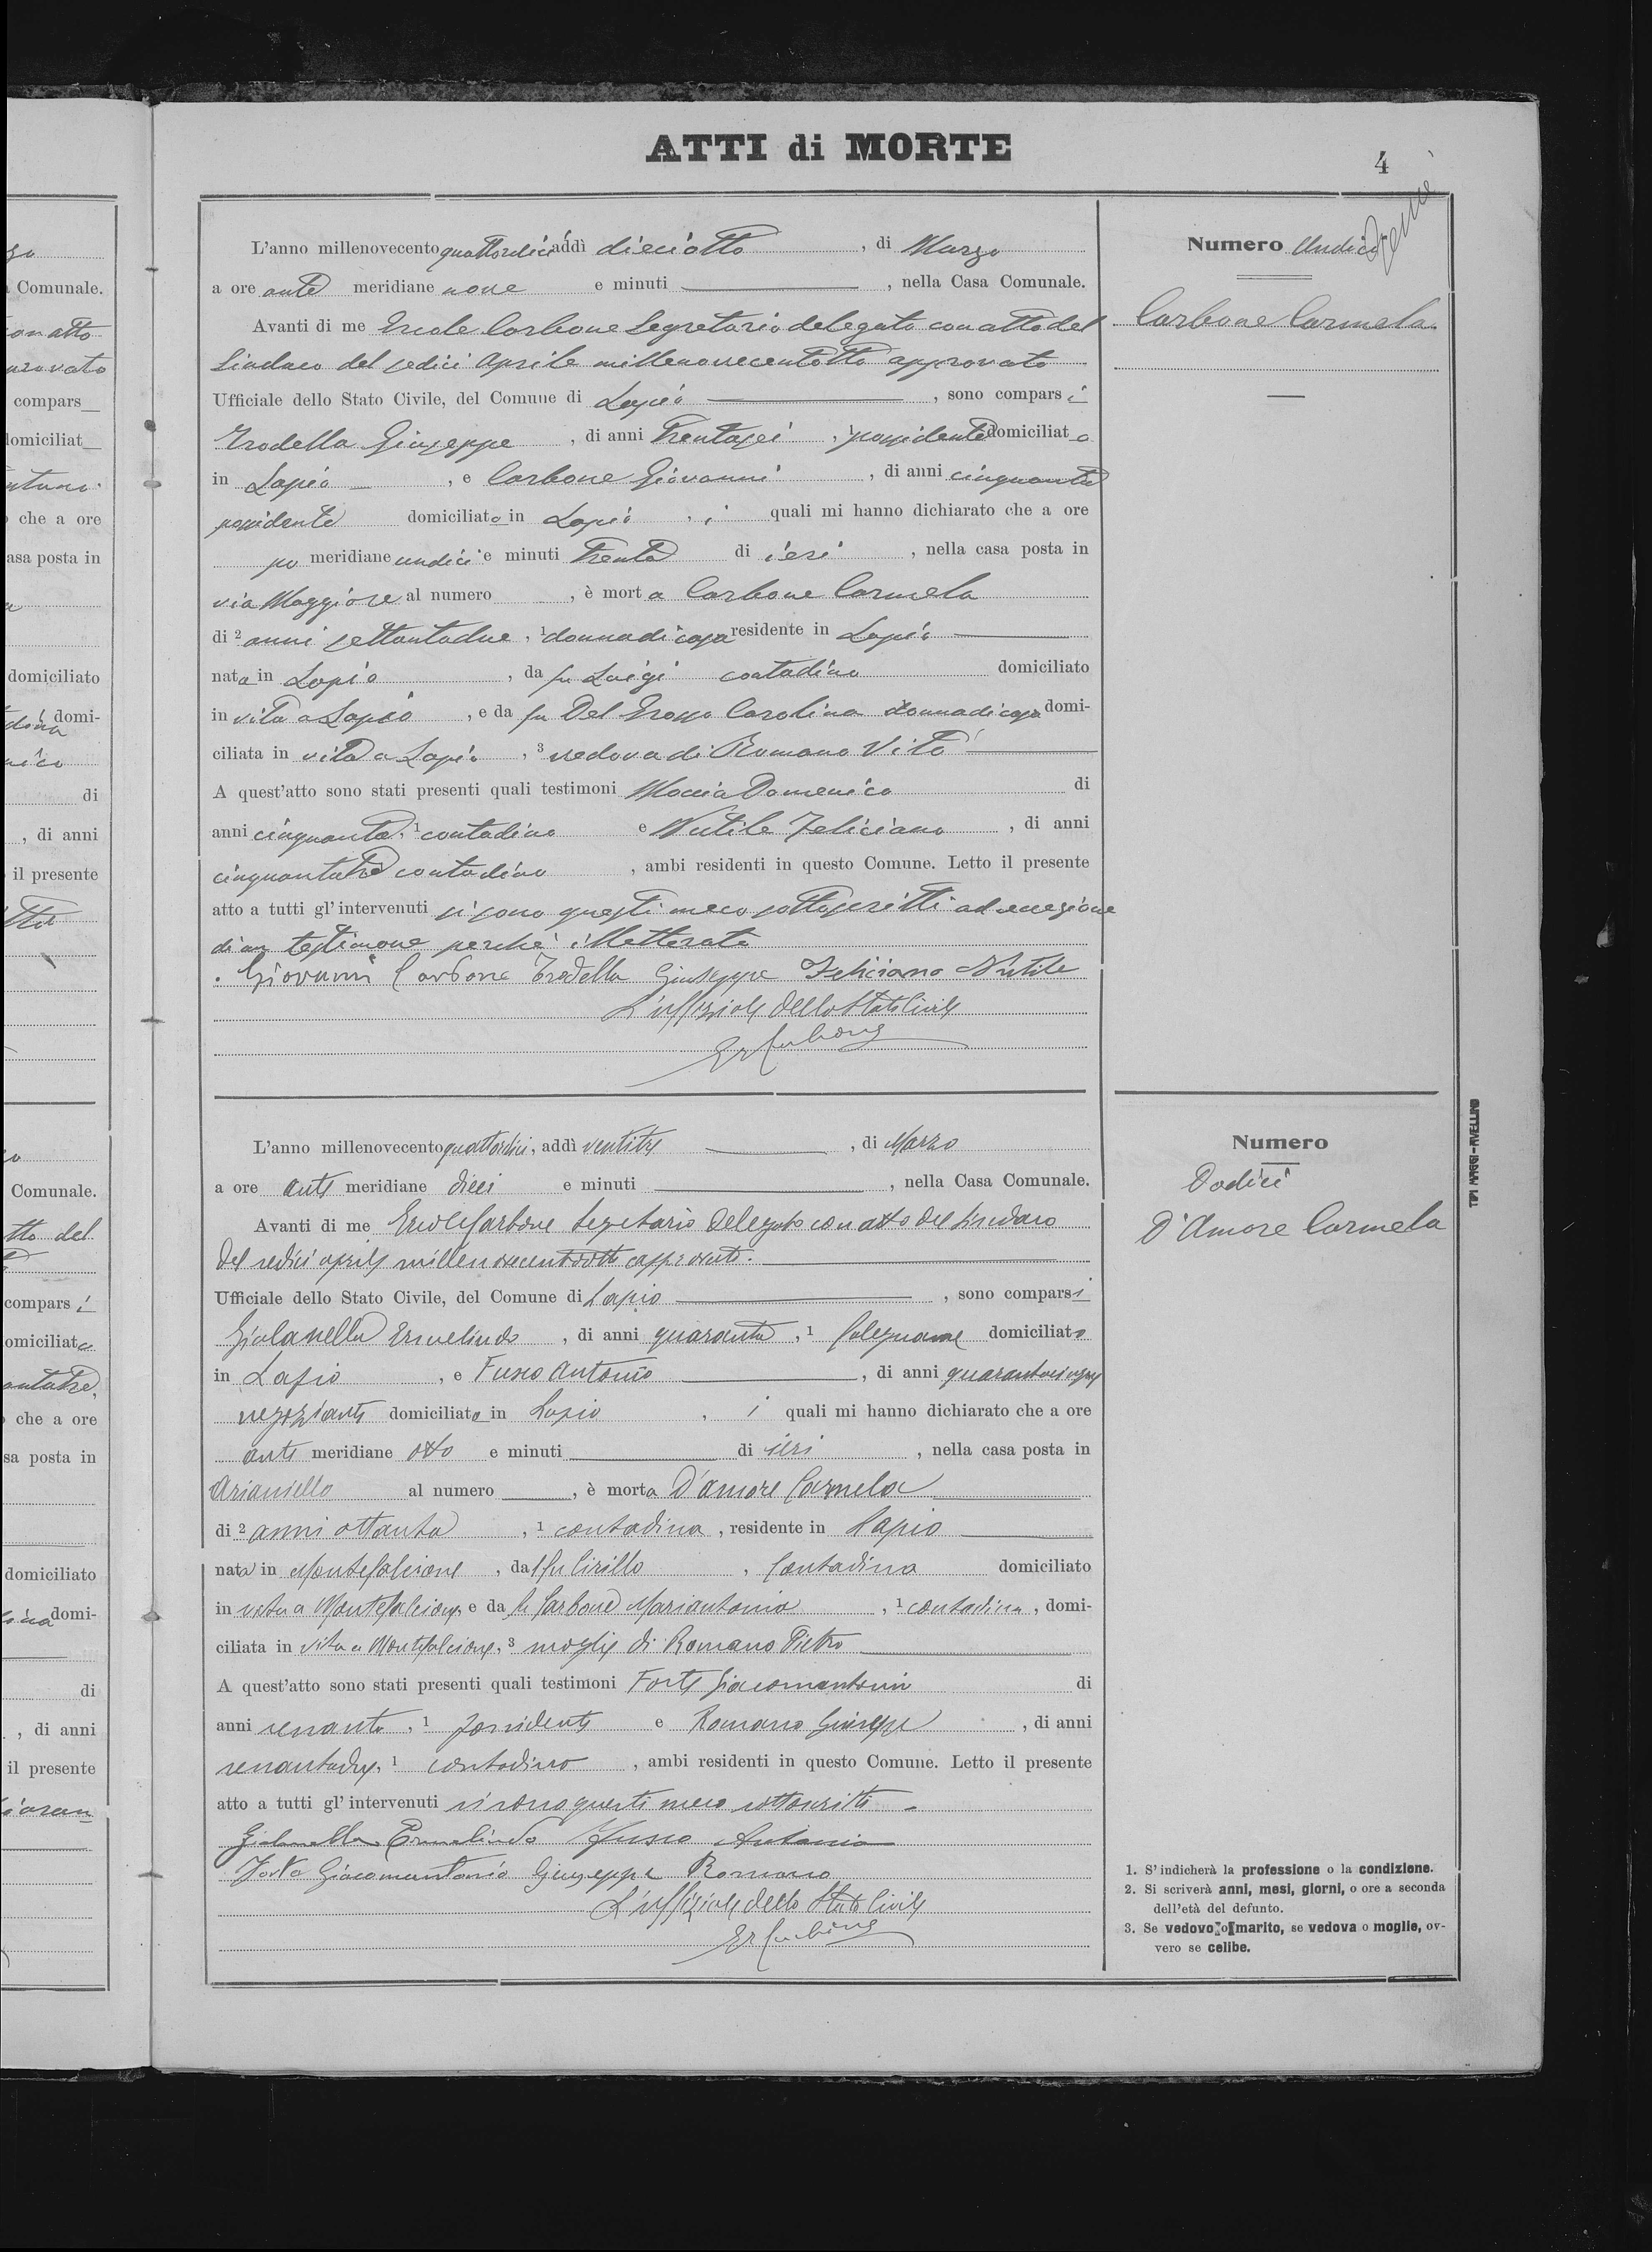 ATTI di MORTE
4
L'anno millenovecento quattordici addì dieciotto, di Marzo
a ore ante meridiane nove e minuti, nella Casa Comunale.
Avanti di me Ercole Carbone Segretario delegato con atto del
Sindaco del sedici Aprile millenovecentotto approvato
Ufficiale dello Stato Civile, del Comune di Lapio, sono compars i
Trodella Giuseppe, di anni Trentasei, possidente domiciliat o
in Lapio, e Carbone Giovanni, di anni cinquanta
possidente domiciliato in Lapio, i quali mi hanno dichiarato che a ore
po meridiane undici e minuti Trenta di ieri, nella casa posta in
via Maggiore al numero, è mort a Carbone Carmela
di 2 anni settantadue, 1 donna di casa residente in Lapio
nata in Lapio, da fu Luigi contadino domiciliato
in vita a Lapio, e da fu Del Grosso Carolina donna di casa domi-
ciliata in vita a Lapio, 3 vedova di Romano Vito
A quest'atto sono stati presenti quali testimoni Moccia Domenico di
anni cinquanta, 1 contadino e Nutile Feliciano, di anni
cinquantatre contadino, ambi residenti in questo Comune. Letto il presente
atto a tutti gl'intervenuti si sono questi meco sottoscritti ad eccezione
di un testimone perchè illetterato
Giovanni Carbone Trodella Giuseppe Feliciano Nutile
L'uffiziale dello Stato Civile
Er Carbone
Numero Undici
Carbone Carmela
L'anno millenovecento quattordici, addì ventitre, di Marzo
a ore ante meridiane dieci e minuti, nella Casa Comunale.
Avanti di me Ercole Carbone Segretario delegato con atto del sindaco
del sedici aprile millenovecentootto approvato.
Ufficiale dello Stato Civile, del Comune di Lapio, sono comparsi
Giolanella Ermelindo, di anni quaranta, 1 falegname domiciliato
in Lapio, e Fusco Antonio, di anni quarantacinque
negoziante domiciliato in Lapio, i quali mi hanno dichiarato che a ore
ante meridiane otto e minuti di ieri, nella casa posta in
Arianiello al numero, è morta D'amore Carmela
di 2 anni ottanta, 1 contadina, residente in Lapio
nata in Montefalcione, da fu Cirillo, Contadino domiciliato
in vita a Montefalcione e da fu Carbone Mariantonia, 1 contadina, domi-
ciliata in vita a Montefalcione, 3 moglie di Romano Pietro
A quest'atto sono stati presenti quali testimoni Forte Giacomantonio di
anni sessanta, 1 possidente e Romano Giuseppe, di anni
sessantadue, 1 contadino, ambi residenti in questo Comune. Letto il presente
atto a tutti gl'intervenuti si sono questi meco sottoscritti
Giolanella Ermelindo Fusco Antonio
Forte Giacomantonio Giuseppe Romano
L'uffiziale dello Stato Civile
Er Carbone
Numero
Dodici
D'Amore Carmela
1. S'indicherà la professione o la condizione.
2. Si scriverà anni, mesi, giorni, o ore a seconda
dell'età del defunto.
3. Se vedovo o marito, se vedova o moglie, ov-
vero se celibe.
TIPI MAGGI - AVELLINO